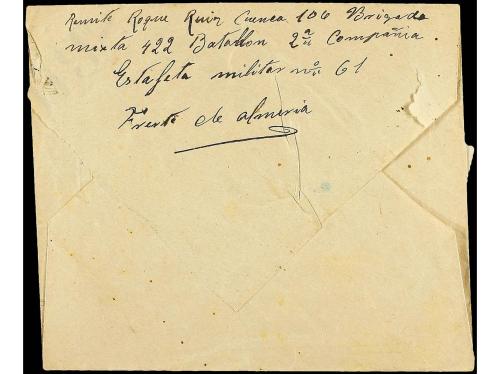 Remite Roque Ruiz Cuenca 106 Brigada
mixta 422 Batallon 2ª Compañia
Estafeta militar nº 61
Frente de almeria